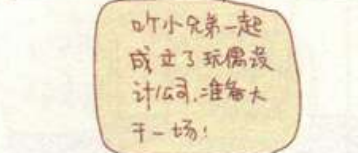 吖小兄弟一起
成立了玩偶设
计公司,准备大
干一场!